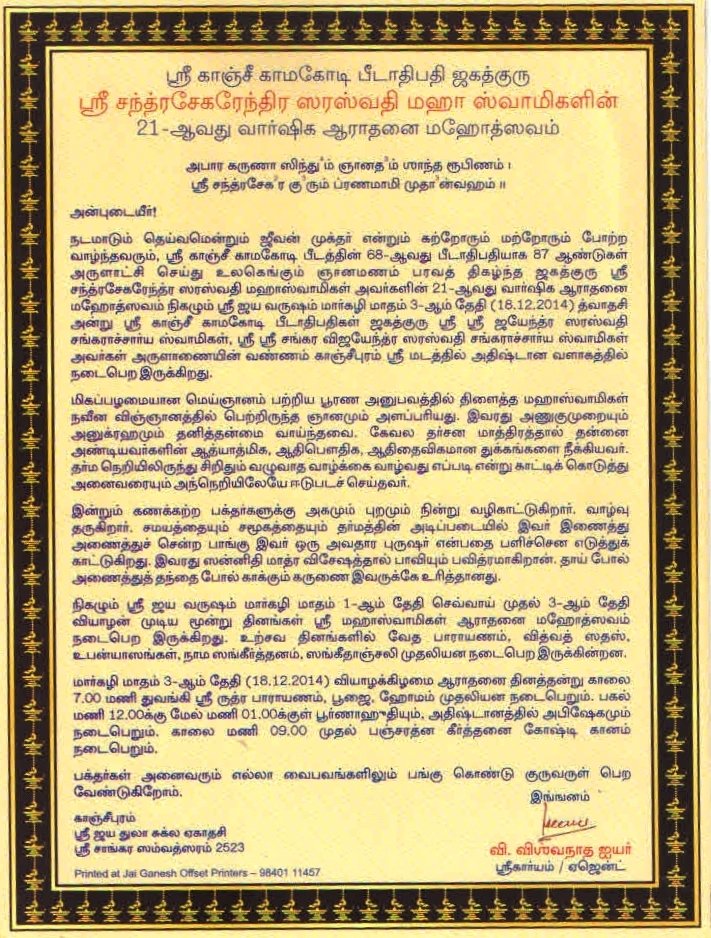 ஸ்ரீ காஞ்சீ காமகோடி பீடாதிபதி ஜகத்குரு
ஸ்ரீ சந்த்ரசேகரேந்திர ஸரஸ்வதி மஹா ஸ்வாமிகளின்
21-ஆவது வார்ஷிக ஆராதனை மஹோத்ஸவம்
அபார கருணா ஸிந்து³ம் ஞானத³ம் ஶாந்த ரூபிணம் ।
ஸ்ரீ சந்த்ரசேக²ர கு³ரும் ப்ரணமாமி முதா³ன்வஹம் ॥
அன்புடையீர்!
நடமாடும் தெய்வமென்றும் ஜீவன் முக்தர் என்றும் கற்றோரும் மற்றோரும் போற்ற
வாழ்ந்தவரும், ஸ்ரீ காஞ்சீ காமகோடி பீடத்தின் 68-ஆவது பீடாதிபதியாக 87 ஆண்டுகள்
அருளாட்சி செய்து உலகெங்கும் ஞானமணம் பரவத் திகழ்ந்த ஜகத்குரு ஸ்ரீ
சந்த்ரசேகரேந்த்ர ஸரஸ்வதி மஹாஸ்வாமிகள் அவர்களின் 21-ஆவது வார்ஷிக ஆராதனை
மஹோத்ஸவம் நிகழும் ஸ்ரீ ஜய வருஷம் மார்கழி மாதம் 3-ஆம் தேதி (18.12.2014) த்வாதசி
அன்று ஸ்ரீ காஞ்சீ காமகோடி பீடாதிபதிகள் ஜகத்குரு ஸ்ரீ ஸ்ரீ ஜயேந்த்ர ஸரஸ்வதி
சங்கராச்சார்ய ஸ்வாமிகள், ஸ்ரீ ஸ்ரீ சங்கர விஜயேந்த்ர ஸரஸ்வதி சங்கராச்சார்ய ஸ்வாமிகள்
அவர்கள் அருளாணையின் வண்ணம் காஞ்சீபுரம் ஸ்ரீ மடத்தில் அதிஷ்டான வளாகத்தில்
நடைபெற இருக்கிறது.
மிகப்பழமையான மெய்ஞானம் பற்றிய பூரண அனுபவத்தில் திளைத்த மஹாஸ்வாமிகள்
நவீன விஞ்ஞானத்தில் பெற்றிருந்த ஞானமும் அளப்பரியது. இவரது அணுகுமுறையும்
அனுக்ரஹமும் தனித்தன்மை வாய்ந்தவை. கேவல தர்சன மாத்திரத்தால் தன்னை
அண்டியவர்களின் ஆத்யாத்மிக, ஆதிபௌதிக, ஆதிதைவிகமான துக்கங்களை நீக்கியவர்.
தர்ம நெறியிலிருந்து சிறிதும் வழுவாத வாழ்க்கை வாழ்வது எப்படி என்று காட்டிக் கொடுத்து
அனைவரையும் அந்நெறியிலேயே ஈடுபடச் செய்தவர்.
இன்றும் கணக்கற்ற பக்தர்களுக்கு அகமும் புறமும் நின்று வழிகாட்டுகிறார். வாழ்வு
தருகிறார். சமயத்தையும் சமூகத்தையும் தர்மத்தின் அடிப்படையில் இவர் இணைத்து
அணைத்துச் சென்ற பாங்கு இவர் ஒரு அவதார புருஷர் என்பதை பளிச்சென எடுத்துக்
காட்டுகிறது. இவரது ஸன்னிதி மாத்ர விசேஷத்தால் பாவியும் பவித்ரமாகிறான். தாய் போல்
அணைத்துத் தந்தை போல் காக்கும் கருணை இவருக்கே உரித்தானது.
நிகழும் ஸ்ரீ ஜய வருஷம் மார்கழி மாதம் 1-ஆம் தேதி செவ்வாய் முதல் 3-ஆம் தேதி
வியாழன் முடிய மூன்று தினங்கள் ஸ்ரீ மஹாஸ்வாமிகள் ஆராதனை மஹோத்ஸவம்
நடைபெற இருக்கிறது. உற்சவ தினங்களில் வேத பாராயணம், வித்வத் ஸதஸ்,
உபன்யாஸங்கள், நாம ஸங்கீர்த்தனம், ஸங்கீதாஞ்சலி முதலியன நடைபெற இருக்கின்றன.
மார்கழி மாதம் 3-ஆம் தேதி (18.12.2014) வியாழக்கிழமை ஆராதனை தினத்தன்று காலை
7.00 மணி துவங்கி ஸ்ரீ ருத்ர பாராயணம், பூஜை, ஹோமம் முதலியன நடைபெறும். பகல்
மணி 12.00க்கு மேல் மணி 01.00க்குள் பூர்ணாஹுதியும், அதிஷ்டானத்தில் அபிஷேகமும்
நடைபெறும். காலை மணி 09.00 முதல் பஞ்சரத்ன கீர்த்தனை கோஷ்டி கானம்
நடைபெறும்.
பக்தர்கள் அனைவரும் எல்லா வைபவங்களிலும் பங்கு கொண்டு குருவருள் பெற
வேண்டுகிறோம்.
இங்ஙனம்
காஞ்சீபுரம்
ஸ்ரீ ஜய துலா சுக்ல ஏகாதசி
ஸ்ரீ சாங்கர ஸம்வத்ஸரம் 2523
வி. விஸ்வநாத ஐயர்
ஸ்ரீகார்யம் / ஏஜெண்ட்
Printed at Jai Ganesh Offset Printers – 98401 11457